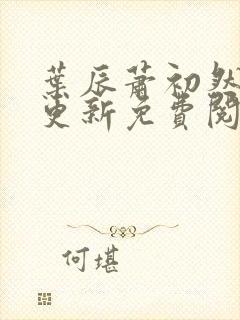 葉辰蕭初然
更新免費閱
何堪